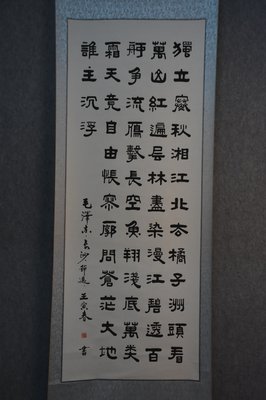 獨立寒秋湘江北去橘子洲頭看
萬山紅遍层林盡染漫江碧透百
舸争流鷹擊長空魚翔淺底萬类
霜天竟自由悵寥廓問蒼茫大地
誰主沉浮
毛澤东长沙節選 王春書